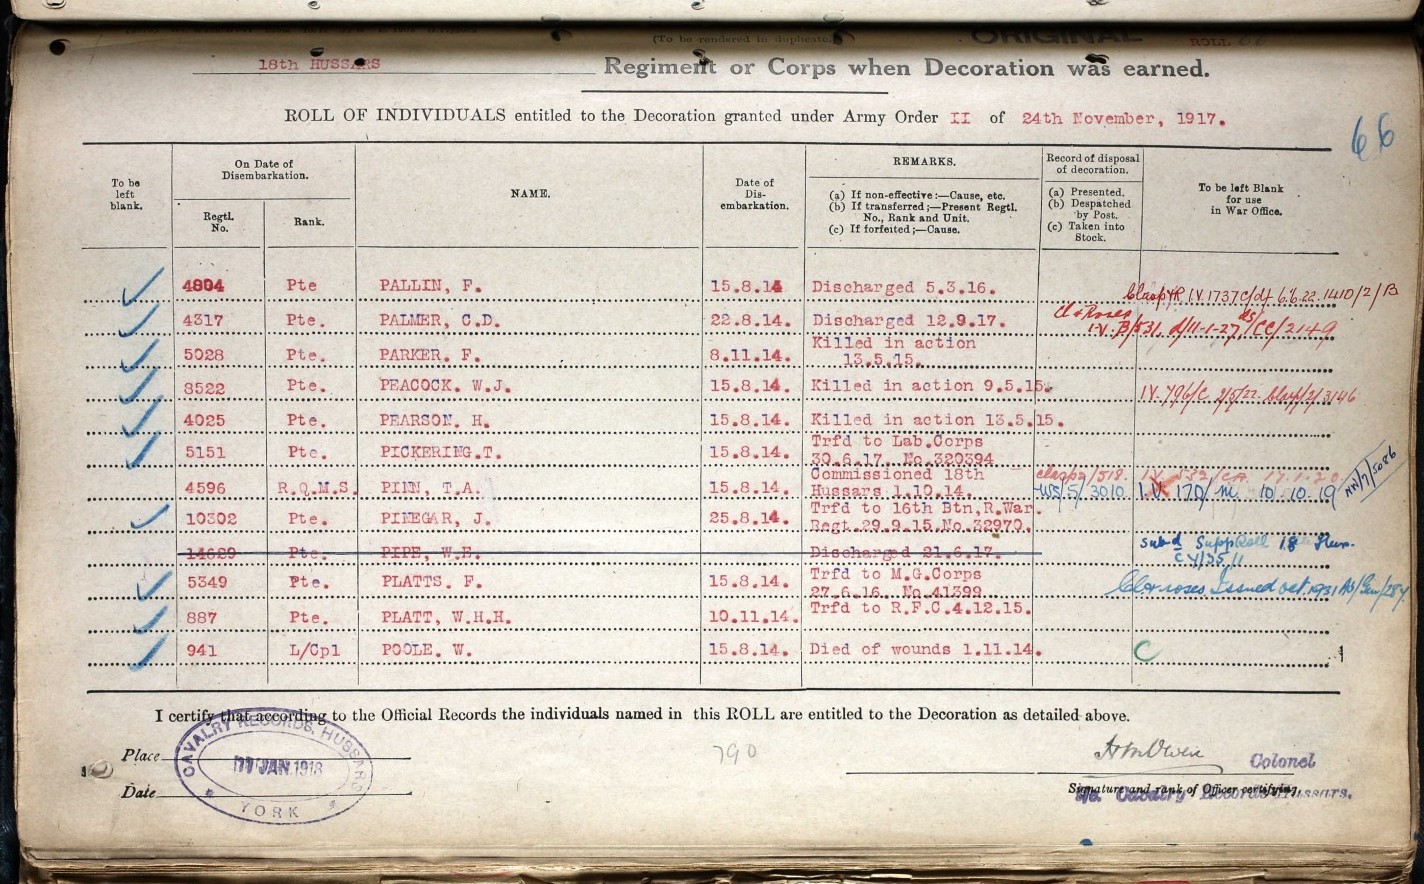 (To be rendered in duplicate.)
ORIGINAL
ROLL
18th HUSSARS Regiment or Corps when Decoration was earned.
ROLL OF INDIVIDUALS entitled to the Decoration granted under Army Order II of 24th November, 1917.
66
To be left blank.
On Date of Disembarkation.
Regtl. No.
Rank.
NAME.
Date of Dis-embarkation.
REMARKS.
(a) If non-effective:—Cause, etc.
(b) If transferred;—Present Regtl. No., Rank and Unit.
(c) If forfeited;—Cause.
Record of disposal of decoration.
(a) Presented.
(b) Despatched by Post.
(c) Taken into Stock.
To be left Blank for use in War Office.
4804 Pte PALLIN, F. 15.8.14 Discharged 5.3.16. I.V. 1737 6.6.22. 1410/2/B
4317 Pte. PALMER, C.D. 22.8.14. Discharged 12.9.17. Cl & Roses
I.V. B/531. d/11-1-27 CC/2149
5028 Pte. PARKER. F. 8.11.14. Killed in action
13.5.15.
8522 Pte. PEACOCK. W.J. 15.8.14. Killed in action 9.5.15. I.V. 796/C 2/5/22. Clasp/2/3146
4025 Pte. PEARSON. H. 15.8.14. Killed in action 13.5.15.
5151 Pte. PICKERING.T. 15.8.14. Trfd to Lab.Corps
30.6.17. No.320394
4596 R.Q.M.S. PINN, T.A. 15.8.14. Commissioned 18th
Hussars 1.10.14. 5/3010 I.V. 170/m. 10.10.19 NW/7/5086
10302 Pte. PINEGAR, J. 25.8.14. Trfd to 16th Btn,R.War.
Regt.29.9.15.No.32970.
14629 Pte. PIPE, W.E. Discharged 21.6.17. Supp Roll 18 Hus.
5349 Pte. PLATTS. F. 15.8.14. Trfd to M.G.Corps
27.6.16. No.41399 Cl & roses Issued Oct. 1931
887 Pte. PLATT, W.H.H. 10.11.14. Trfd to R.F.C.4.12.15.
941 L/Cpl POOLE. W. 15.8.14. Died of wounds 1.11.14. C
I certify that according to the Official Records the individuals named in this ROLL are entitled to the Decoration as detailed above.
Place
Date
CAVALRY RECORDS, HUSSARS
JAN.1918
YORK
790
Colonel
Signature and rank of Officer certifying.
Cavalry Records Hussars.